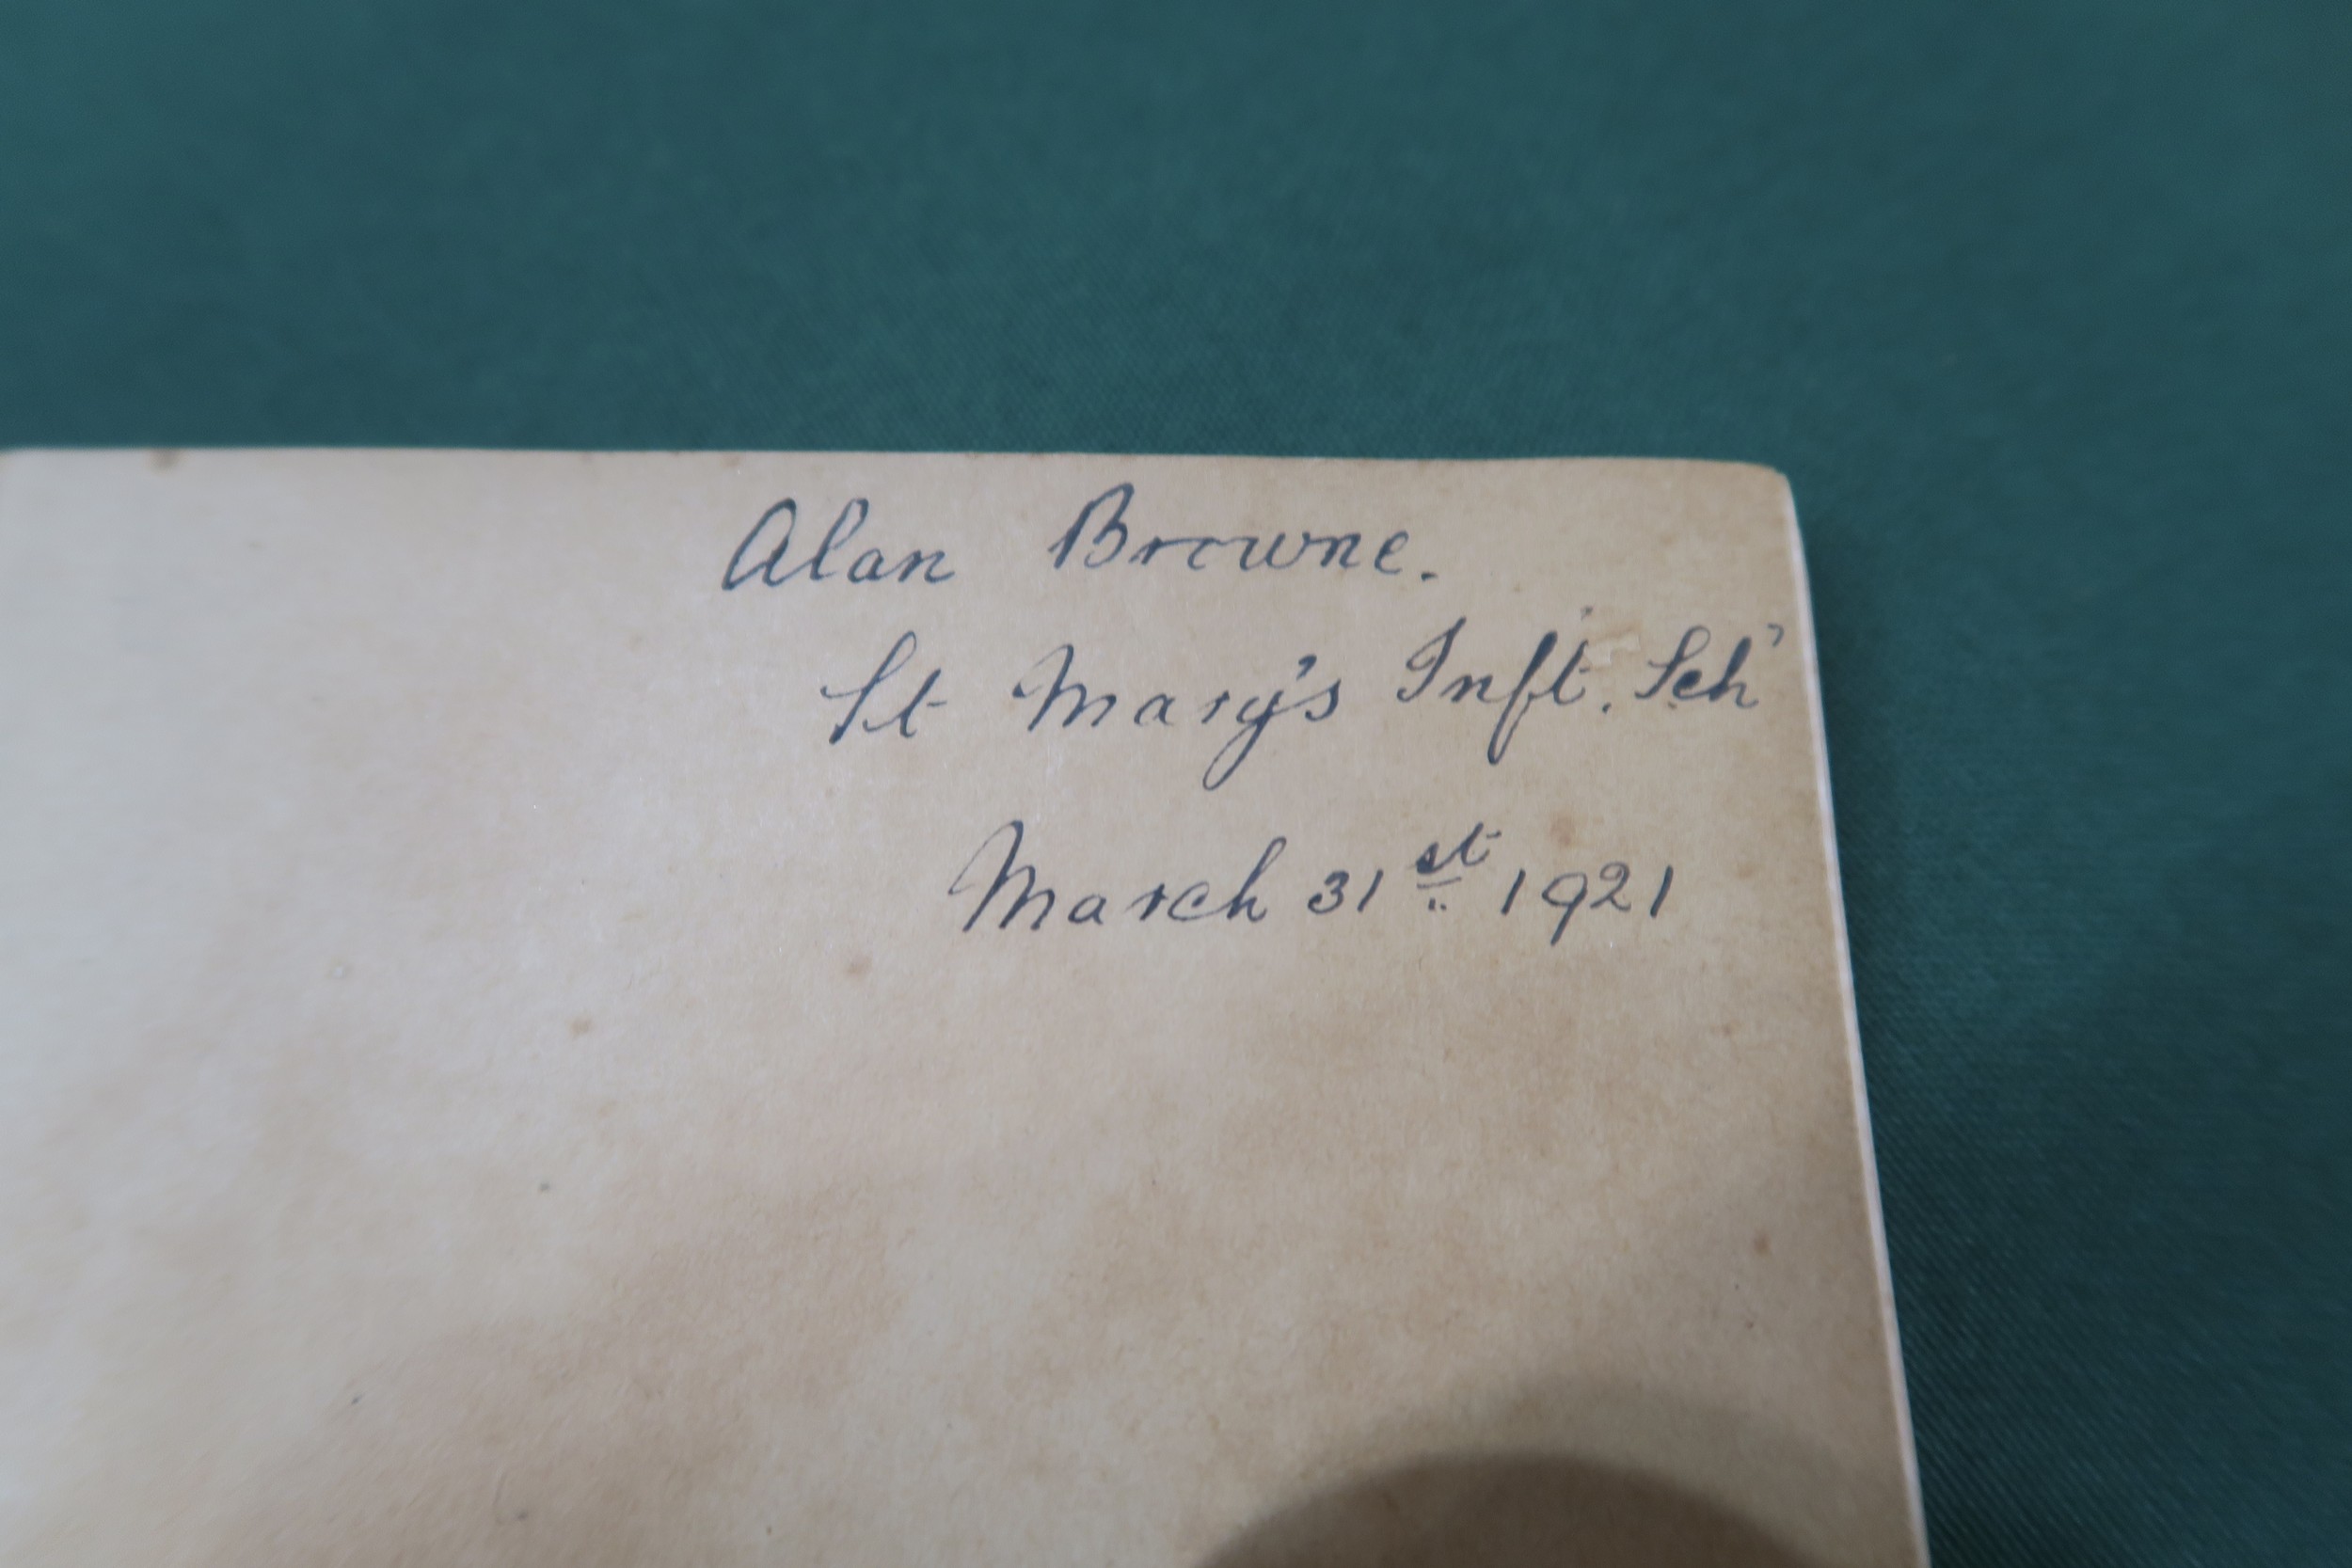 Alan Browne.
St Mary's Inft. Sch'
March 31st 1921